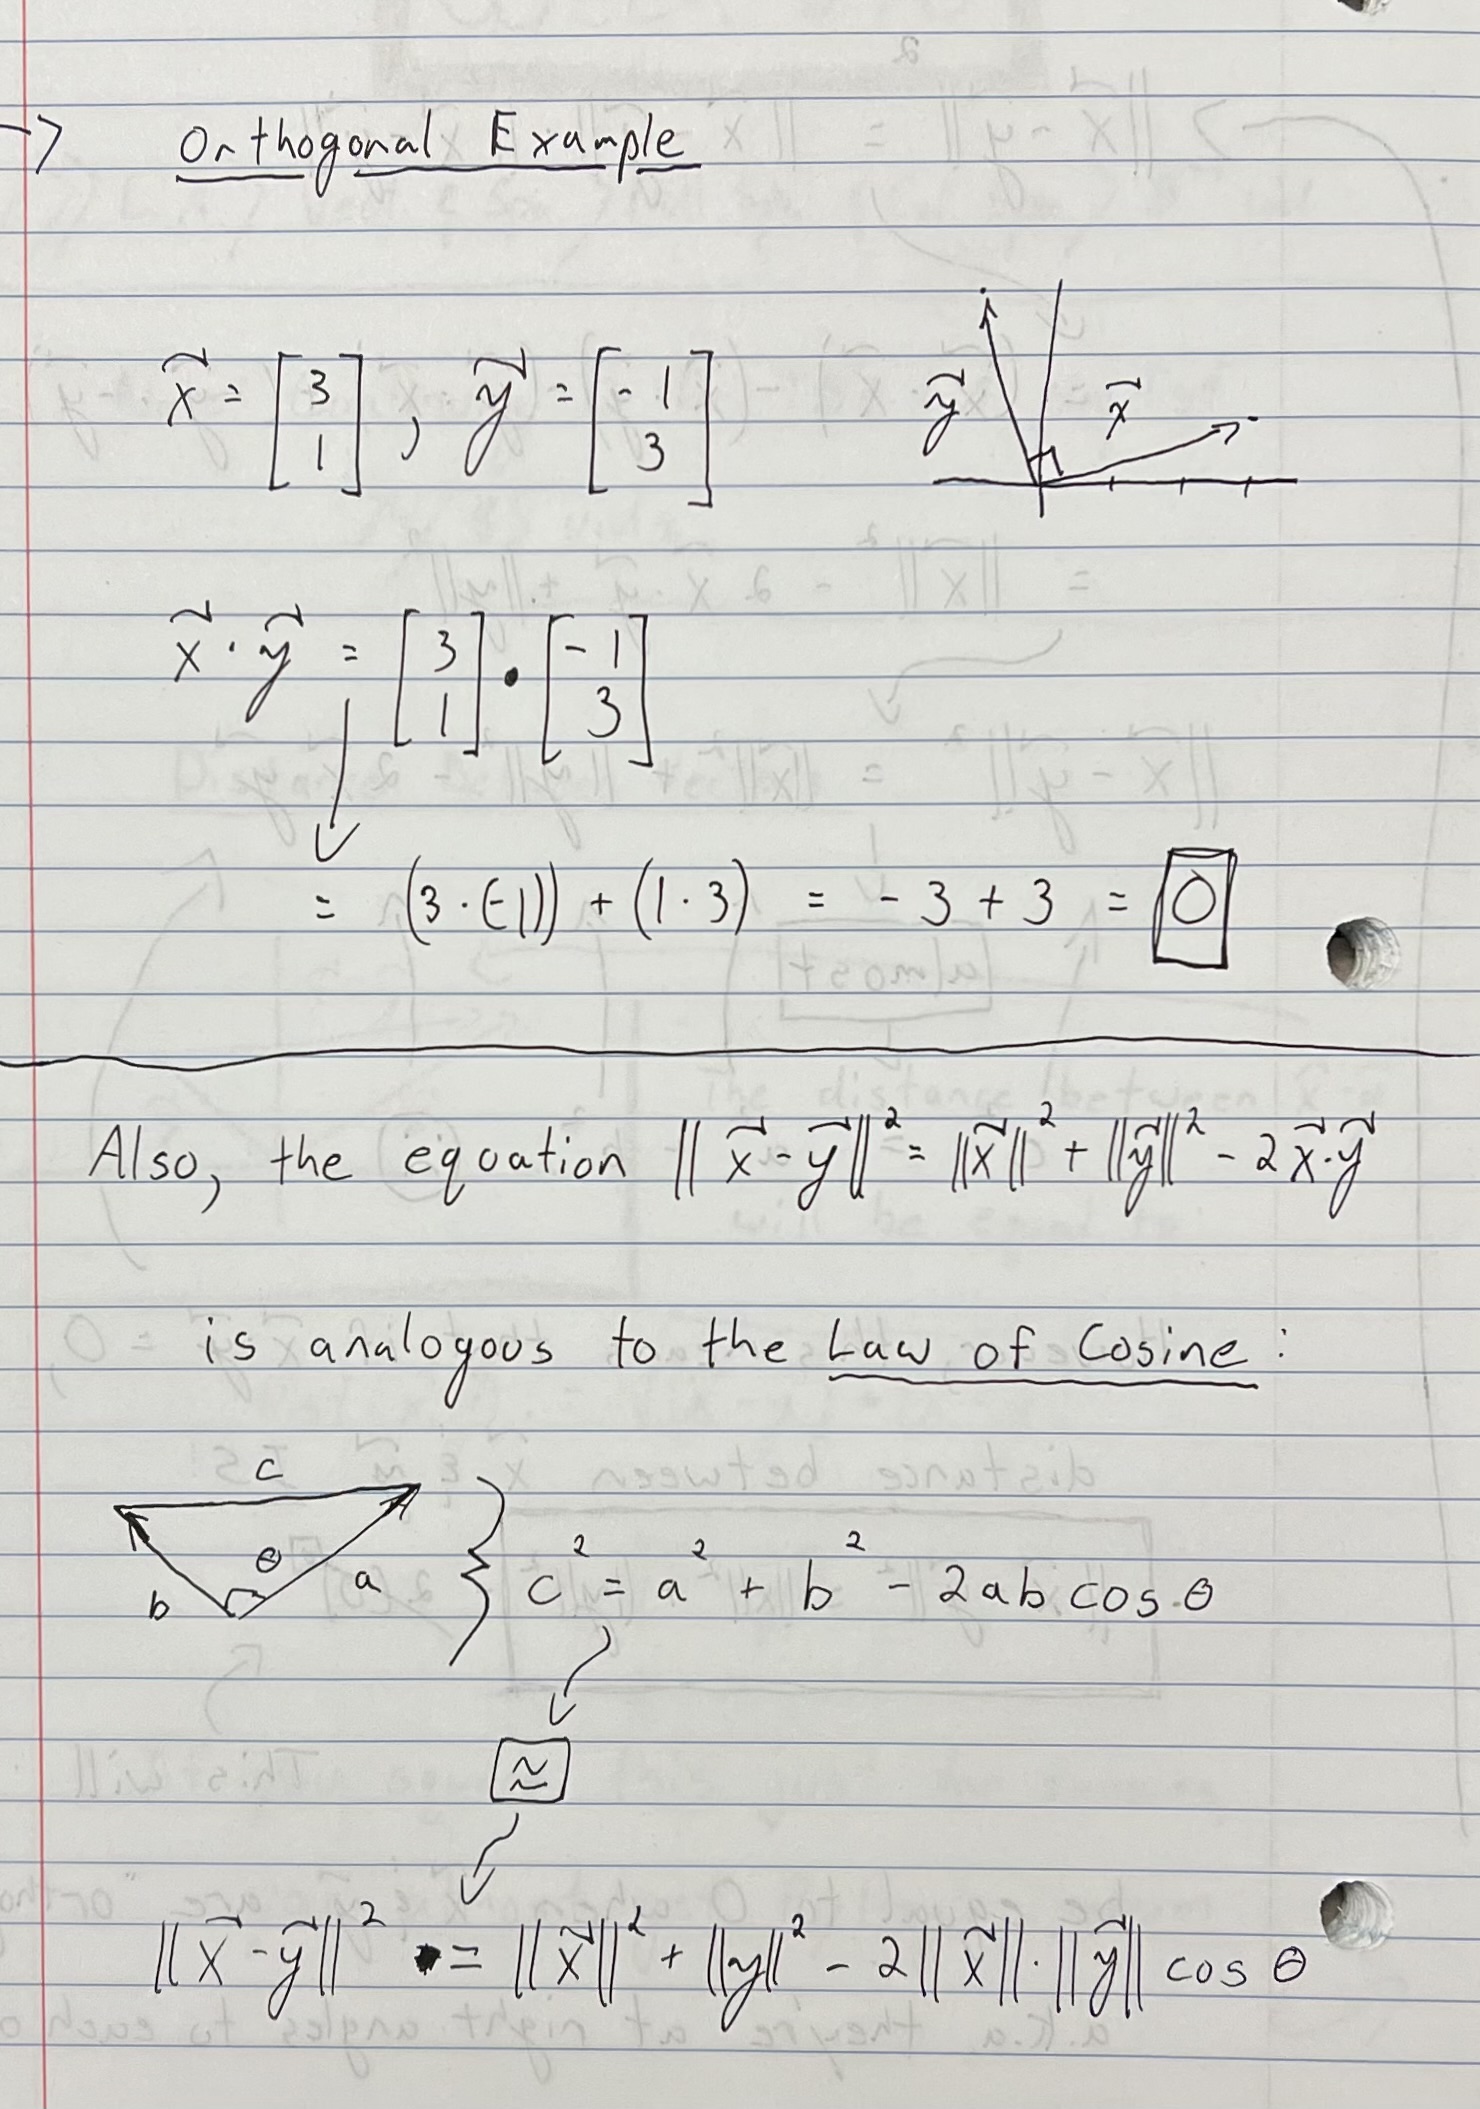 → Orthogonal Example
x⃗ = [3 1], y⃗ = [-1 3]
y⃗ x⃗
x⃗ · y⃗ = [3 1] · [-1 3]
= (3 · (-1)) + (1 · 3) = -3 + 3 = 0
Also, the equation ||x⃗ - y⃗||² = ||x⃗||² + ||y⃗||² - 2x⃗·y⃗
is analogous to the Law of Cosine:
c
θ
b a
c² = a² + b² - 2ab cos θ
≈
||x⃗ - y⃗||² = ||x⃗||² + ||y||² - 2||x⃗||·||y⃗|| cos θ